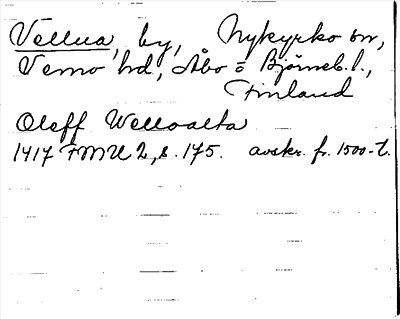 Vellua, by, Nykyrko sn,
Vemo hd, Åbo o Björneb. l.,
Finland
Oleff Welloalta
1417 FMU 2, s. 175. avskr. fr. 1500-t.